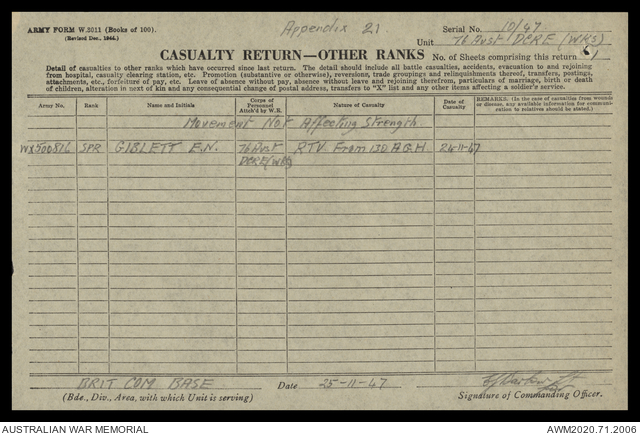 ARMY FORM W.3011 (Books of 100).
(Revised Dec., 1944.)
Appendix 21
Serial No. 10/47
Unit 76 Aust DCRE (WKS)
CASUALTY RETURN—OTHER RANKS
No. of Sheets comprising this return (1)
Detail of casualties to other ranks which have occurred since last return. The detail should include all battle casualties, accidents, evacuation to and rejoining
from hospital, casualty clearing station, etc. Promotion (substantive or otherwise), reversions, trade groupings and relinquishments thereof, transfers, postings,
attachments, etc., forfeiture of pay, etc. Leave of absence without pay, absence without leave and rejoining therefrom, particulars of marriage, birth or death
of children, alteration in next of kin and any consequential change of postal address, transfers to "X" list and any other items affecting a soldier's service.
Army No. Rank Name and Initials Corps of Personnel Attch'd by W.E. Nature of Casualty Date of Casualty REMARKS. (In the case of casualties from wounds or disease, any available information for communication to relatives should be stated.)
Movement Not Affecting Strength
WX500816 SPR GIBLETT E.N. 76 Aust DCRE (WKS) RTU From 130 A.G.H 24-11-47
BRIT COM BASE Date 25-11-47
(Bde., Div., Area, with which Unit is serving) Signature of Commanding Officer.
AUSTRALIAN WAR MEMORIAL AWM2020.71.2006